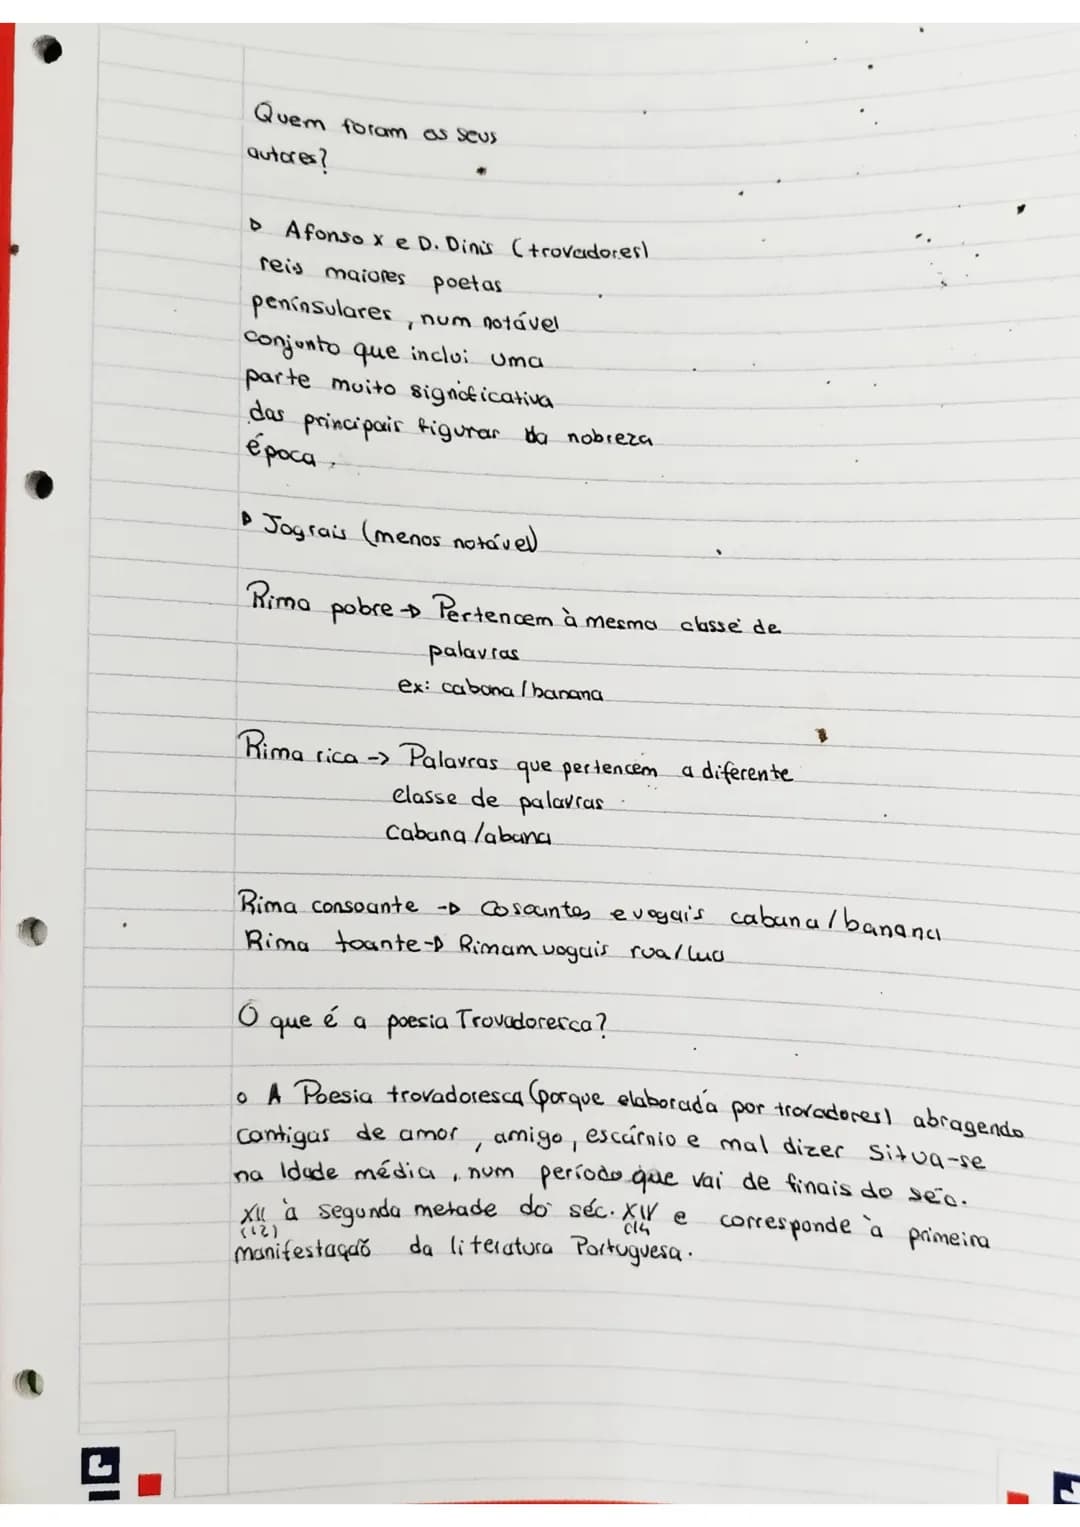 Quem foram os seus
autores?
▷ Afonso x e D. Dinis (trovadores)
reis maiores poetas
peninsulares, num notável
conjunto que inclui uma
parte muito significativa
das principais figuras da nobreza
época.
▷ Jograis (menos notável)
Rima pobre → Pertencem à mesma classe de
palavras
ex: cabana / banana
Rima rica -> Palavras que pertencem a diferente
classe de palavras
Cabana /abana
Rima consoante → Cosoantes e vogais cabana / banana
Rima toante → Rimam vogais rua/lua
O que é a poesia Trovadoresca?
o A Poesia trovadoresca (porque elaborada por trovadores) abragendo
cantigas de amor, amigo, escárnio e mal dizer situa-se
na Idade média, num período que vai de finais do séc.
XII à segunda metade do séc. XIV e corresponde à primeira
(12)
manifestação da literatura Portuguesa.